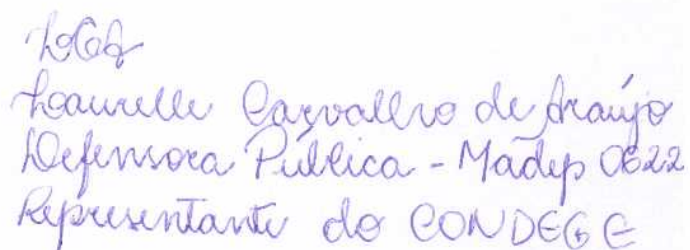 LCA
Laurelle Carvalho de Araújo
Defensora Pública - Madep 0622
Representante do CONDEGE